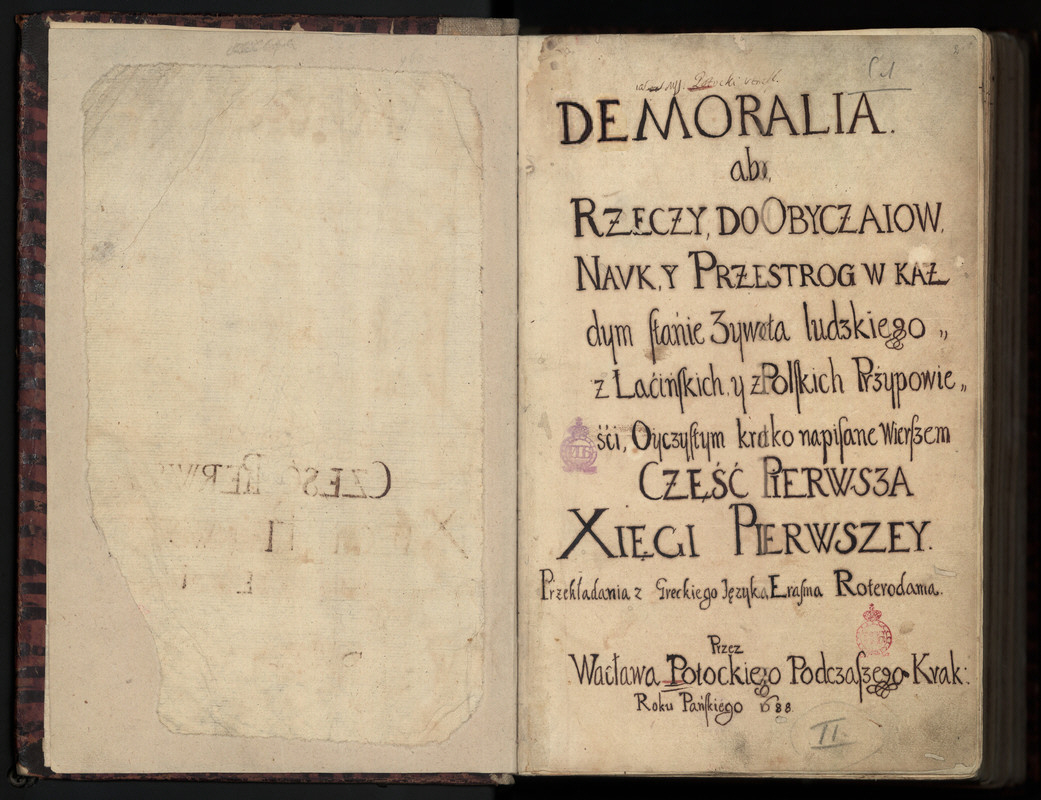 CZĘŚĆ PIERWS
Potocki
DE MORALIA.
abo,
RZECZY, DO OBYCZAIOW,
NAVK, Y PRZESTROG W KAZ
dym ſtańie Zywota ludzkiego „
z Łaćińſkich, y z Polſkich Przypowie„
śći, Oyczyſtym krotko napiſane Wierſzem
CZĘŚĆ PIERWSZA
XIĘGI PIERWSZEY.
Przekładania z Greckiego Języka, Eraſma Roterodama.
Przez
Wacława Potockiego Podczaſzego Krak:
Roku Pańſkiego 1688.
II.